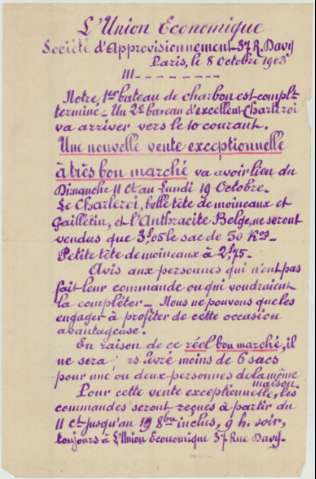 L'Union Economique
Société d'Approvisionnement_37 R. Davy
Paris, le 8 Octobre 1903
Notre 1er bateau de charbon est complt
terminé_ Un 2e bateau d'excellent Charleroi
va arriver vers le 10 courant.
Une nouvelle vente exceptionnelle
à très bon marché va avoir lieu du
Dimanche 11 Ct au Lundi 19 Octobre.
Le Charleroi, belle tête de moineaux et
Gailletin, et l'Anthracite Belge, ne seront
vendus que 3f05 le sac de 50 Kos_
Petite tête de moineaux à 2f75.
Avis aux personnes qui n'ont pas
fait leur commande ou qui voudraient
la compléter_ Nous ne pouvons que les
engager à profiter de cette occasion
avantageuse.
En raison de ce réel bon marché, il
ne sera moins de 6 sacs
pour une ou deux personnes de la même
maison.
Pour cette vente exceptionnelle, les
commandes seront reçues à partir du
11 ct jusqu'au 19 8bre inclus, 9 h. soir,
toujours à L'Union Economique 37 Rue Davy_